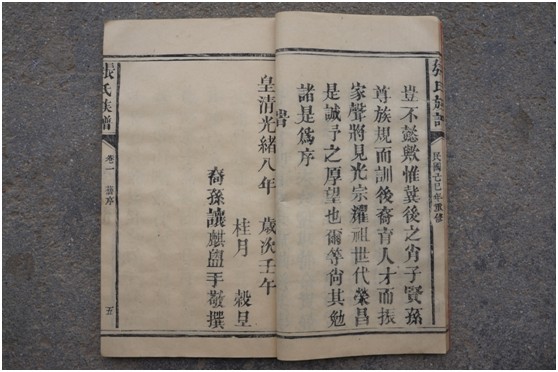 張氏族譜
民國己巳年重修
豈不懿歟惟冀後之肖子賢孫
尊族規而訓後裔育人才而振
家聲將見光宗耀祖世代榮昌
是誠予之厚望也爾等尚其勉
諸是爲序
皇清光緒八年 歲次壬午
桂月 穀旦
裔孫讓麒盥手敬撰
張氏族譜
卷一 舊序
五